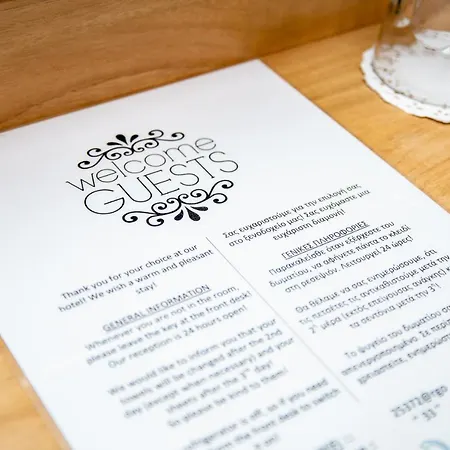 welcome
GUESTS
Thank you for your choice at our
hotel! We wish a warm and pleasant
stay!
GENERAL INFORMATION
Whenever you are not in the room,
please leave the key at the front desk!
Our reception is 24 hours open!
We would like to inform you that your
towels will be changed after the 2nd
day (except when necessary) and your
sheets after the 3rd day!
So please be kind to them!
refrigerator is off, so if you need
the front desk to switch
it on!
Σας ευχαριστούμε για την επιλογή σας
στο ξενοδοχείο μας! Σας ευχόμαστε μια
ευχάριστη διαμονή!
ΓΕΝΙΚΕΣ ΠΛΗΡΟΦΟΡΙΕΣ
Παρακαλείσθε όταν εξέρχεστε του
δωματίου, να αφήνετε πάντα το κλειδί
στη ρεσεψιόν. Λειτουργεί 24 ώρες!
Θα θέλαμε να σας ενημερώσουμε, ότι
τις πετσέτες τις αντικαθιστούμε μετά την
2η μέρα (εκτός επείγουσας ανάγκης) κ
τα σεντόνια μετά την 3η!
Το ψυγείο του δωματίου
απενεργοποιημένο. Σε περί
χρειαστείτε, ενημερώσ
25372@